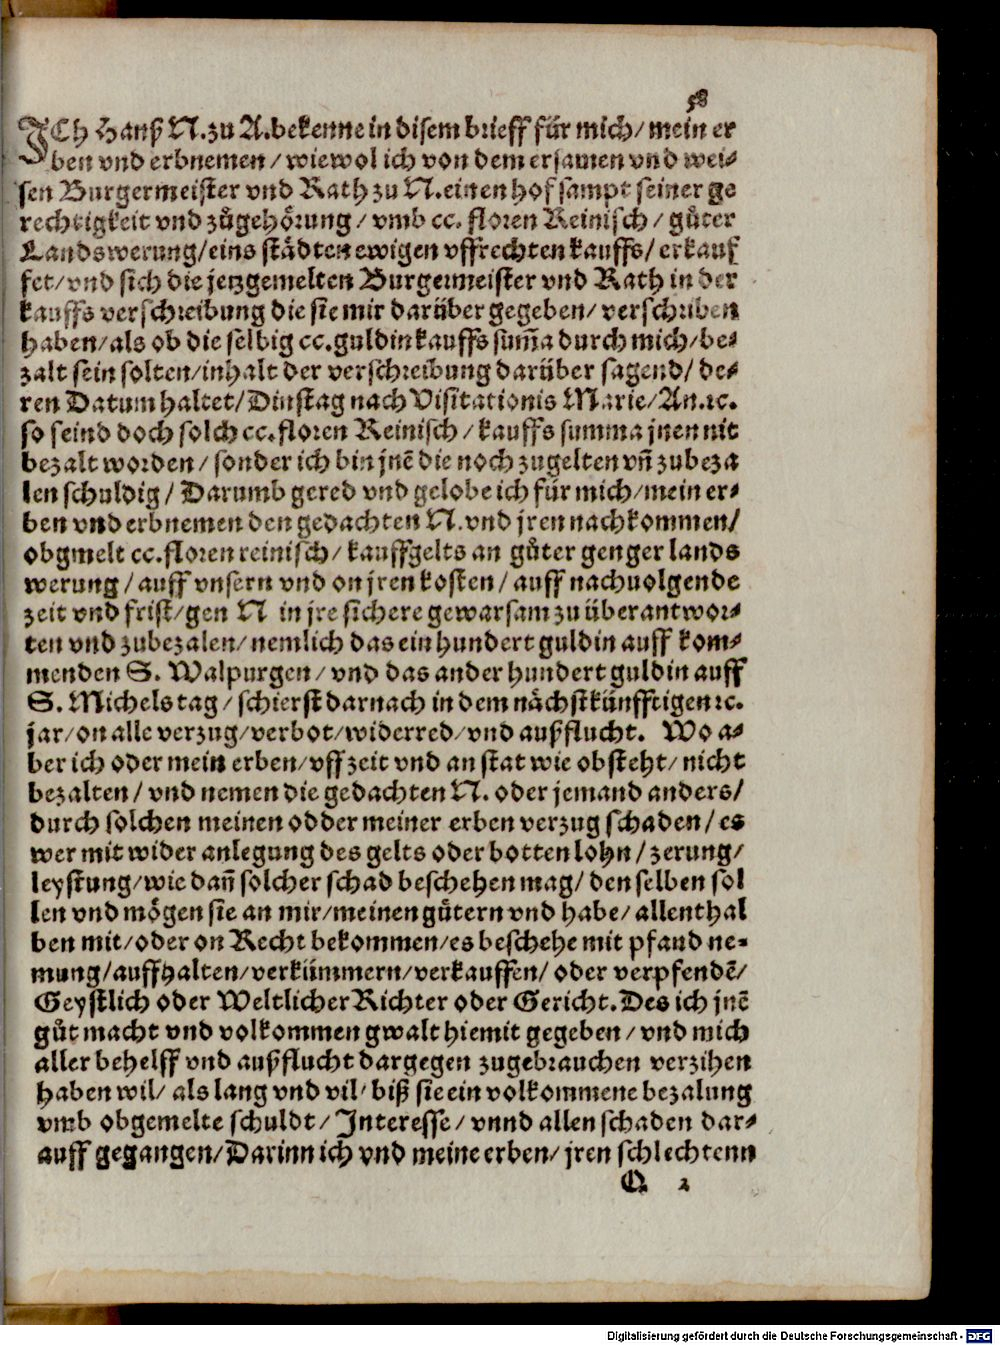 58
ICh Hanß N. zu A. bekenne in disem brieff für mich/ mein er
ben vnd erbnemen/ wiewol ich von dem ersamen vnd wei-
sen Burgermeister vnd Rath zu N. einen hof sampt seiner ge
rechtigkeit vnd zůgehörung/ vmb cc. floren Reinisch/ gůter
Landswerung/ eins städten ewigen vffrechten kauffs/ erkauf
fet/ vnd sich die jetzgemelten Burgermeister vnd Rath in der
kauffs verschreibung die sie mir darüber gegeben/ verschriben
haben/ als ob die selbig cc. guldin kauffs sum̃a durch mich/ be-
zalt sein solten/ inhalt der verschreibung darüber sagend/ de-
ren Datum haltet/ Dinstag nach Visitationis Marie/ An. ꝛc.
so seind doch solch cc. floren Reinisch/ kauffs summa jnen nit
bezalt worden/ sonder ich bin jnē die noch zugelten vñ zubeza
len schuldig/ Darumb gered vnd gelobe ich für mich/ mein er-
ben vnd erbnemen den gedachten N. vnd jren nachkommen/
obgmelt cc. floren reinisch/ kauffgelts an gůter genger lands
werung/ auff vnsern vnd on jren kosten/ auff nachuolgende
zeit vnd frist/ gen N in jre sichere gewarsam zu überantwor-
ten vnd zubezalen/ nemlich das ein hundert guldin auff kom-
menden S. Walpurgen/ vnd das ander hundert guldin auff
S. Michels tag/ schierst darnach in dem nächstkünfftigen ꝛc.
jar/ on alle verzug/ verbot/ widerred/ vnd außflucht. Wo a-
ber ich oder mein erben/ vff zeit vnd an stat wie obsteht/ nicht
bezalten/ vnd nemen die gedachten N. oder jemand anders/
durch solchen meinen odder meiner erben verzug schaden/ es
wer mit wider anlegung des gelts oder botten lohn/ zerung/
leystung/ wie dañ solcher schad beschehen mag/ den selben sol
len vnd mögen sie an mir/ meinen gůtern vnd habe/ allenthal
ben mit/ oder on Recht bekommen/ es beschehe mit pfand ne-
mung/ auffhalten/ verkümmern/ verkauffen/ oder verpfendē/
Geystlich oder Weltlicher Richter oder Gericht. Des ich jnē
gůt macht vnd volkommen gwalt hiemit gegeben/ vnd mich
aller behelff vnd außflucht dargegen zugebrauchen verzihen
haben wil/ als lang vnd vil/ biß sie ein volkommene bezalung
vmb obgemelte schuldt/ Interesse/ vnnd allen schaden dar-
auff gegangen/ Darinn ich vnd meine erben/ jren schlechtenn
Q 2
Digitalisierung gefördert durch die Deutsche Forschungsgemeinschaft - DFG